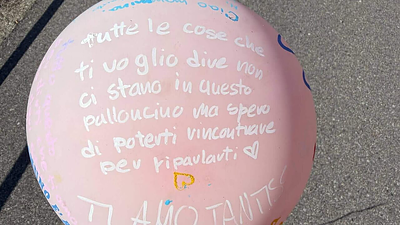 Ciao
tutte le cose che
ti voglio dire non
ci stano in questo
palloncino ma spero
di poterti rincontrare
per riparlarti ♡
TI AMO TANTISS